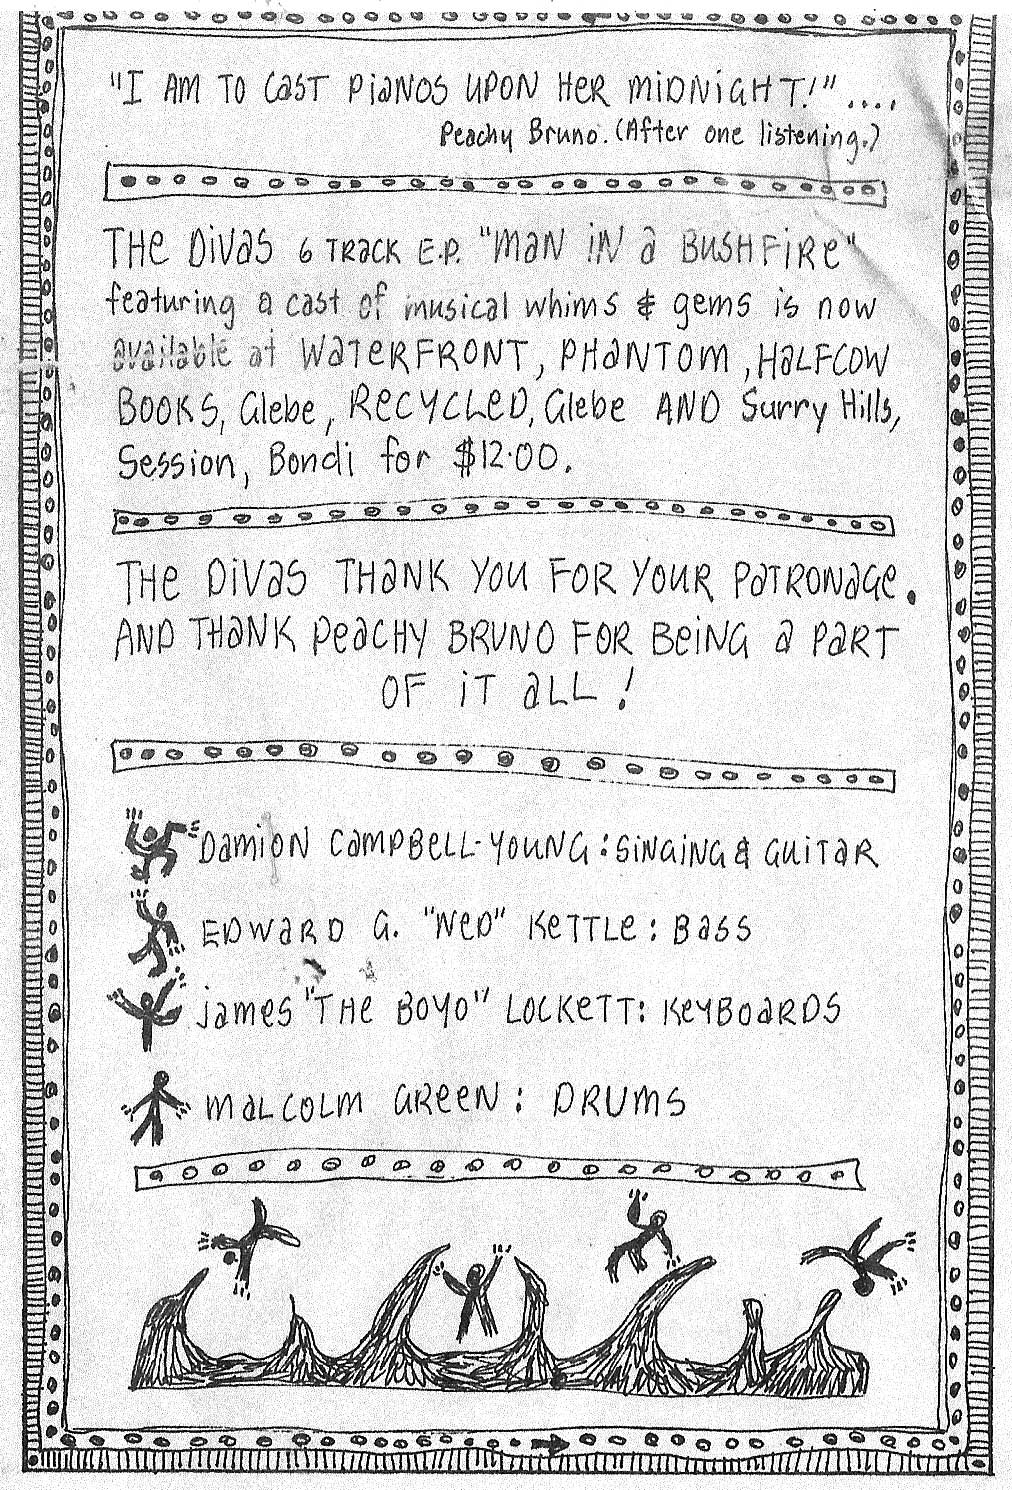 "I AM TO CAST PIANOS UPON HER MIDNIGHT!"....
Peachy Bruno. (After one listening.)
THE DIVAS 6 TRACK E.P. "MAN IN A BUSHFIRE"
featuring a cast of musical whims & gems is now
available at WATERFRONT, PHANTOM, HALFCOW
BOOKS, Glebe, RECYCLED, Glebe AND Surry Hills,
Session, Bondi for $12.00.
THE DIVAS THANK YOU FOR YOUR PATRONAGE.
AND THANK PEACHY BRUNO FOR BEING A PART
OF IT ALL!
DAMION CAMPBELL-YOUNG: SINGING & GUITAR
EDWARD G. "NED" KETTLE: BASS
JAMES "THE BOYO" LOCKETT: KEYBOARDS
MALCOLM GREEN: DRUMS